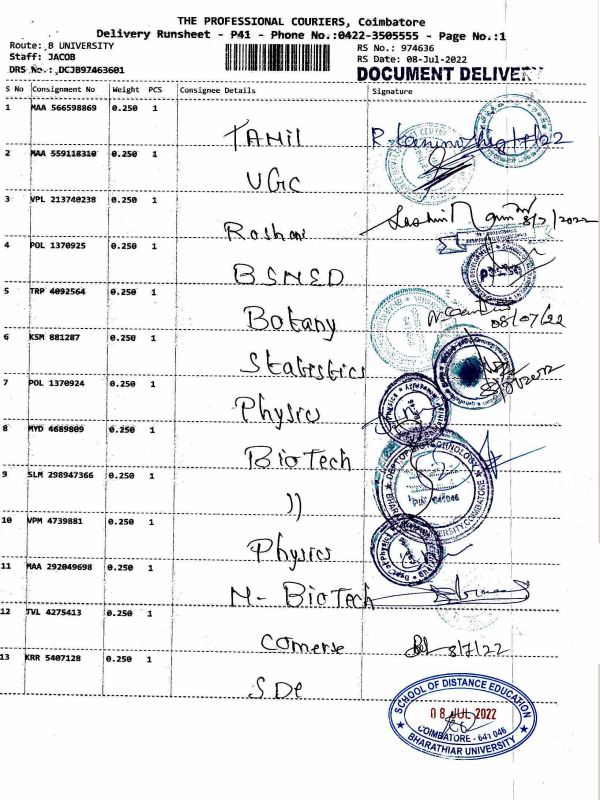 THE PROFESSIONAL COURIERS, Coimbatore
Delivery Runsheet - P41 - Phone No.:0422-3505555 - Page No.:1
Route: B UNIVERSITY RS No.: 974636
Staff: JACOB RS Date: 08-Jul-2022
DRS No.: DCJB97463601 DOCUMENT DELIVERY
S No Consignment No Weight PCS Consignee Details Signature
1 MAA 566598869 0.250 1
TAMIL
2 MAA 559118310 0.250 1
UGC
3 VPL 213740238 0.250 1
8/7/2022
4 POL 1370925 0.250 1
BSMED
5 TRP 4092564 0.250 1
Botany 08/07/22
6 KSM 881287 0.250 1
Statistics
7 POL 1370924 0.250 1
Physics
8 MYD 4689809 0.250 1
BioTech
DEPT OF BIOTECHNOLOGY
9 SLM 298947366 0.250 1
))
10 VPM 4739881 0.250 1
Physics
11 MAA 292049698 0.250 1
M- BioTech
12 TVL 4275413 0.250 1
Comerse 8/7/22
13 KRR 5407128 0.250 1
SDE
SCHOOL OF DISTANCE EDUCATION
08 JUL 2022
COIMBATORE - 641 046
BHARATHIAR UNIVERSITY